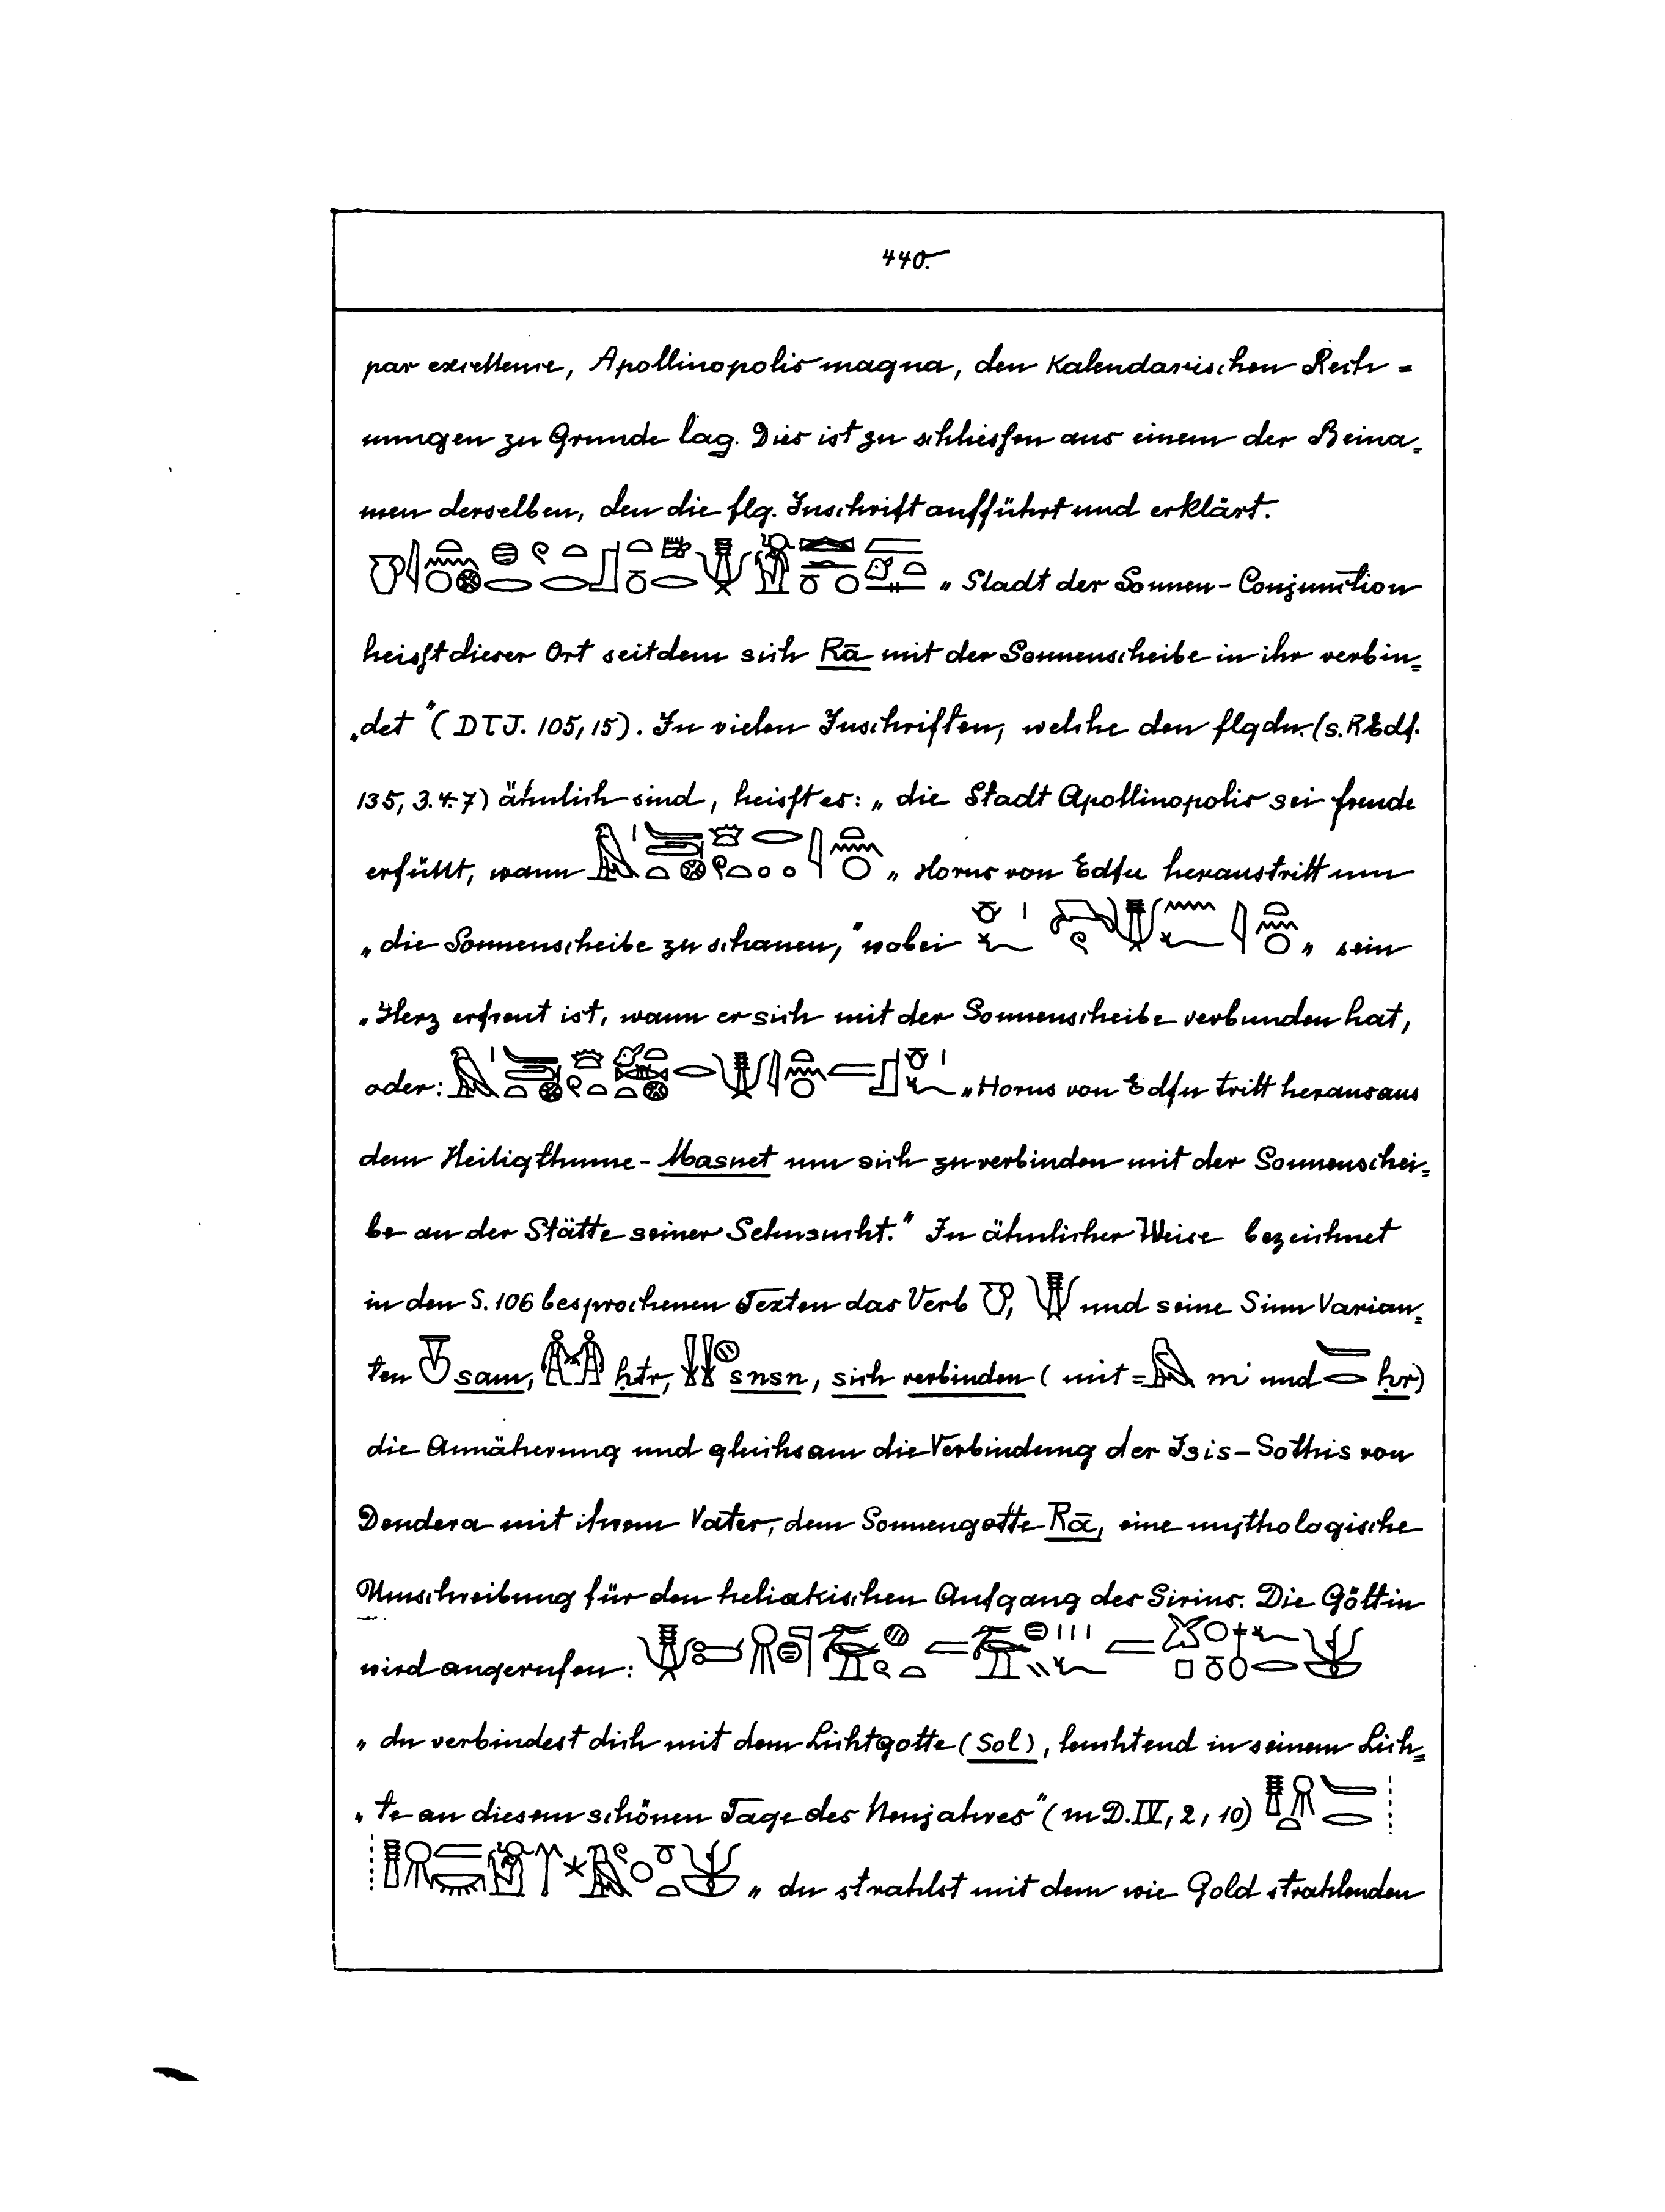 440.
par excellence, Apollinopolis magna, den Kalendarischen Rech=
nungen zu Grunde lag. Dies ist zu schliessen aus einem der Beina=
men derselben, den die flg. Inschrift aufführt und erklärt.
„Stadt der Sonnen-Conjunction
heisst dieser Ort seitdem sich Rā mit der Sonnenscheibe in ihr verbin=
„det" (DTJ. 105, 15). In vielen Inschriften, welche den flgdn. (s. REdf.
135, 3.4.7) ähnlich sind, heisst es: „die Stadt Apollinopolis sei freude
erfüllt, wann „Horus von Edfu heraustritt um
„die Sonnenscheibe zu schauen," wobei „sein
„Herz erfreut ist, wann er sich mit der Sonnenscheibe verbunden hat,
oder: „Horus von Edfu tritt heraus aus
dem Heiligthume-Masnet um sich zu verbinden mit der Sonnenschei=
be an der Stätte seiner Sehnsucht." In ähnlicher Weise bezeichnet
in den S. 106 besprochenen Texten das Verb , und seine Sinn Varian=
ten sam, ḥtr, snsn, sich verbinden (mit = m und ḥr)
die Annäherung und gleichsam die Verbindung der Isis-Sothis von
Dendera mit ihrem Vater, dem Sonnengotte Rā, eine mythologische
Umschreibung für den heliakischen Aufgang des Sirius. Die Göttin
wird angerufen:
„du verbindest dich mit dem Lichtgotte (Sol), leuchtend in seinem Lich=
„te an diesem schönen Tage des Neujahres" (m D. IV, 2, 10)
„du strahlst mit dem wie Gold strahlenden